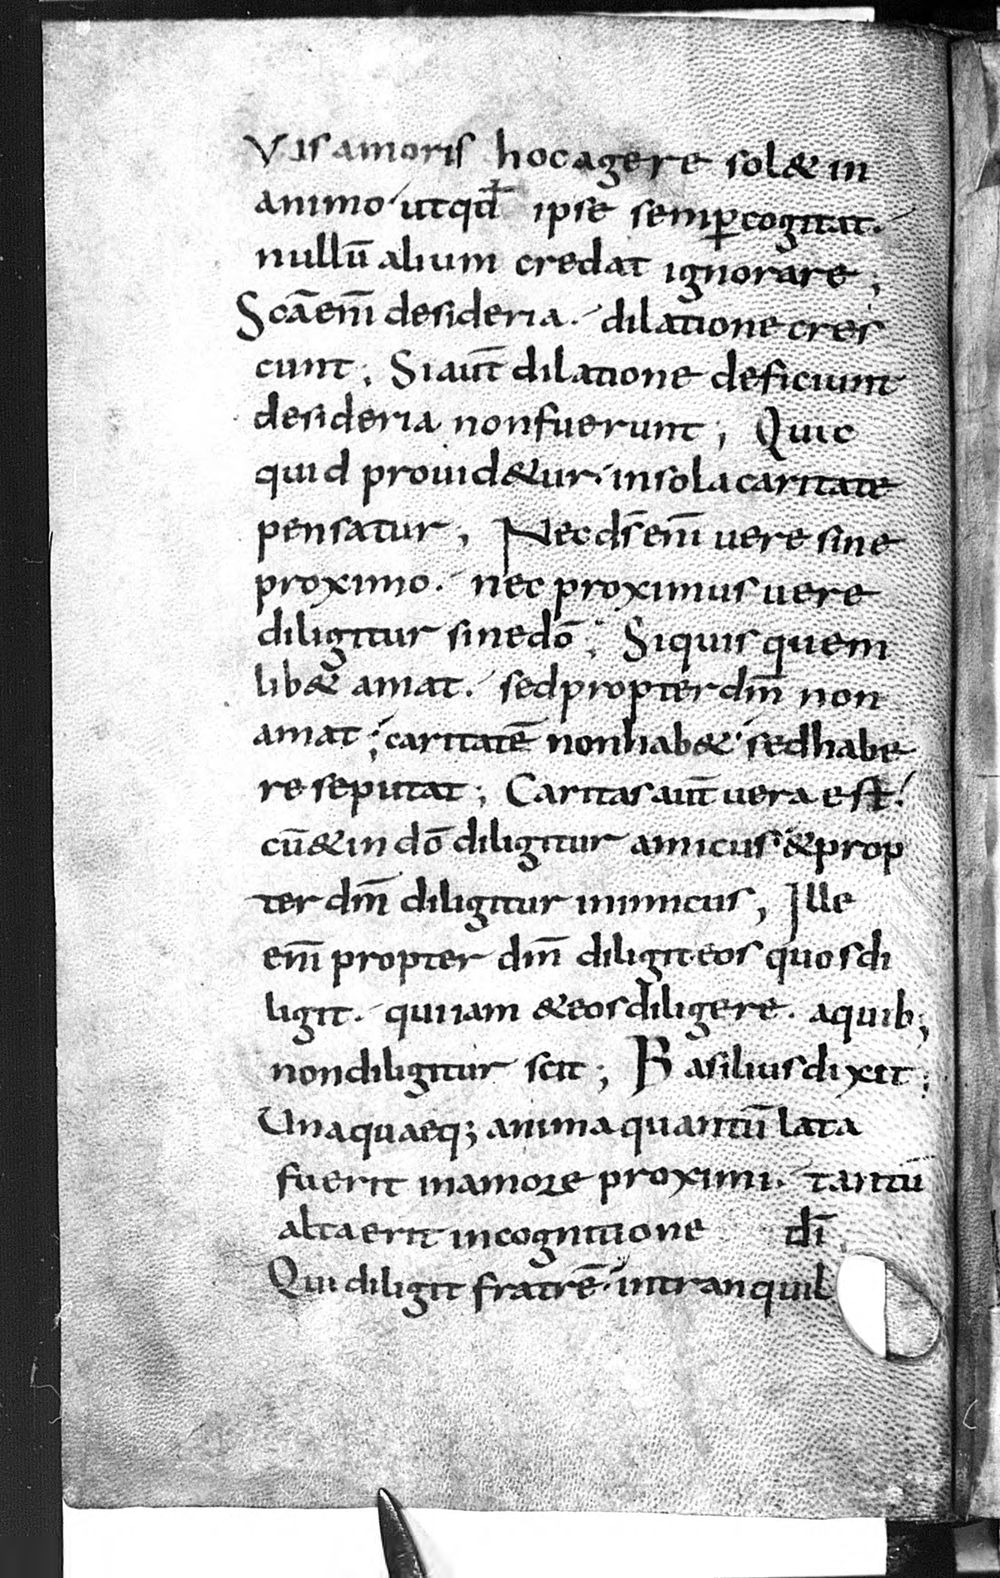 Vis amoris hoc agere sol& in
animo utqđ ipse semꝑ cogitat.
nullū alium credat ignorare;
Scā enī desideria. dilatione cres
cunt; Si aut̄ dilatione deficiunt
desideria non fuerunt; Quic
quid prouid&ur. in sola caritate
pensatur; Nec ds̄ enī vere sine
proximo. nec proximus uere
diligitur sine dō; Si quis quem
lib& amat. sed propter dm̄ non
amat; caritatē non hab& sed habe
re se putat; Caritas aut̄ uera est.
cū & in dō diligitur amicus & prop
ter dm̄ diligitur inimicus; Ille
enī propter dm̄ diligit eos quos di
ligit. qui iam & eos diligere. a quib;
non diligitur scit; Basilius dixit;
Unaquaeq; anima quantū lata
fuerit in amore proximi. tantū
alta erit in cognitione dī
Qui diligit fratrē. in tranquil